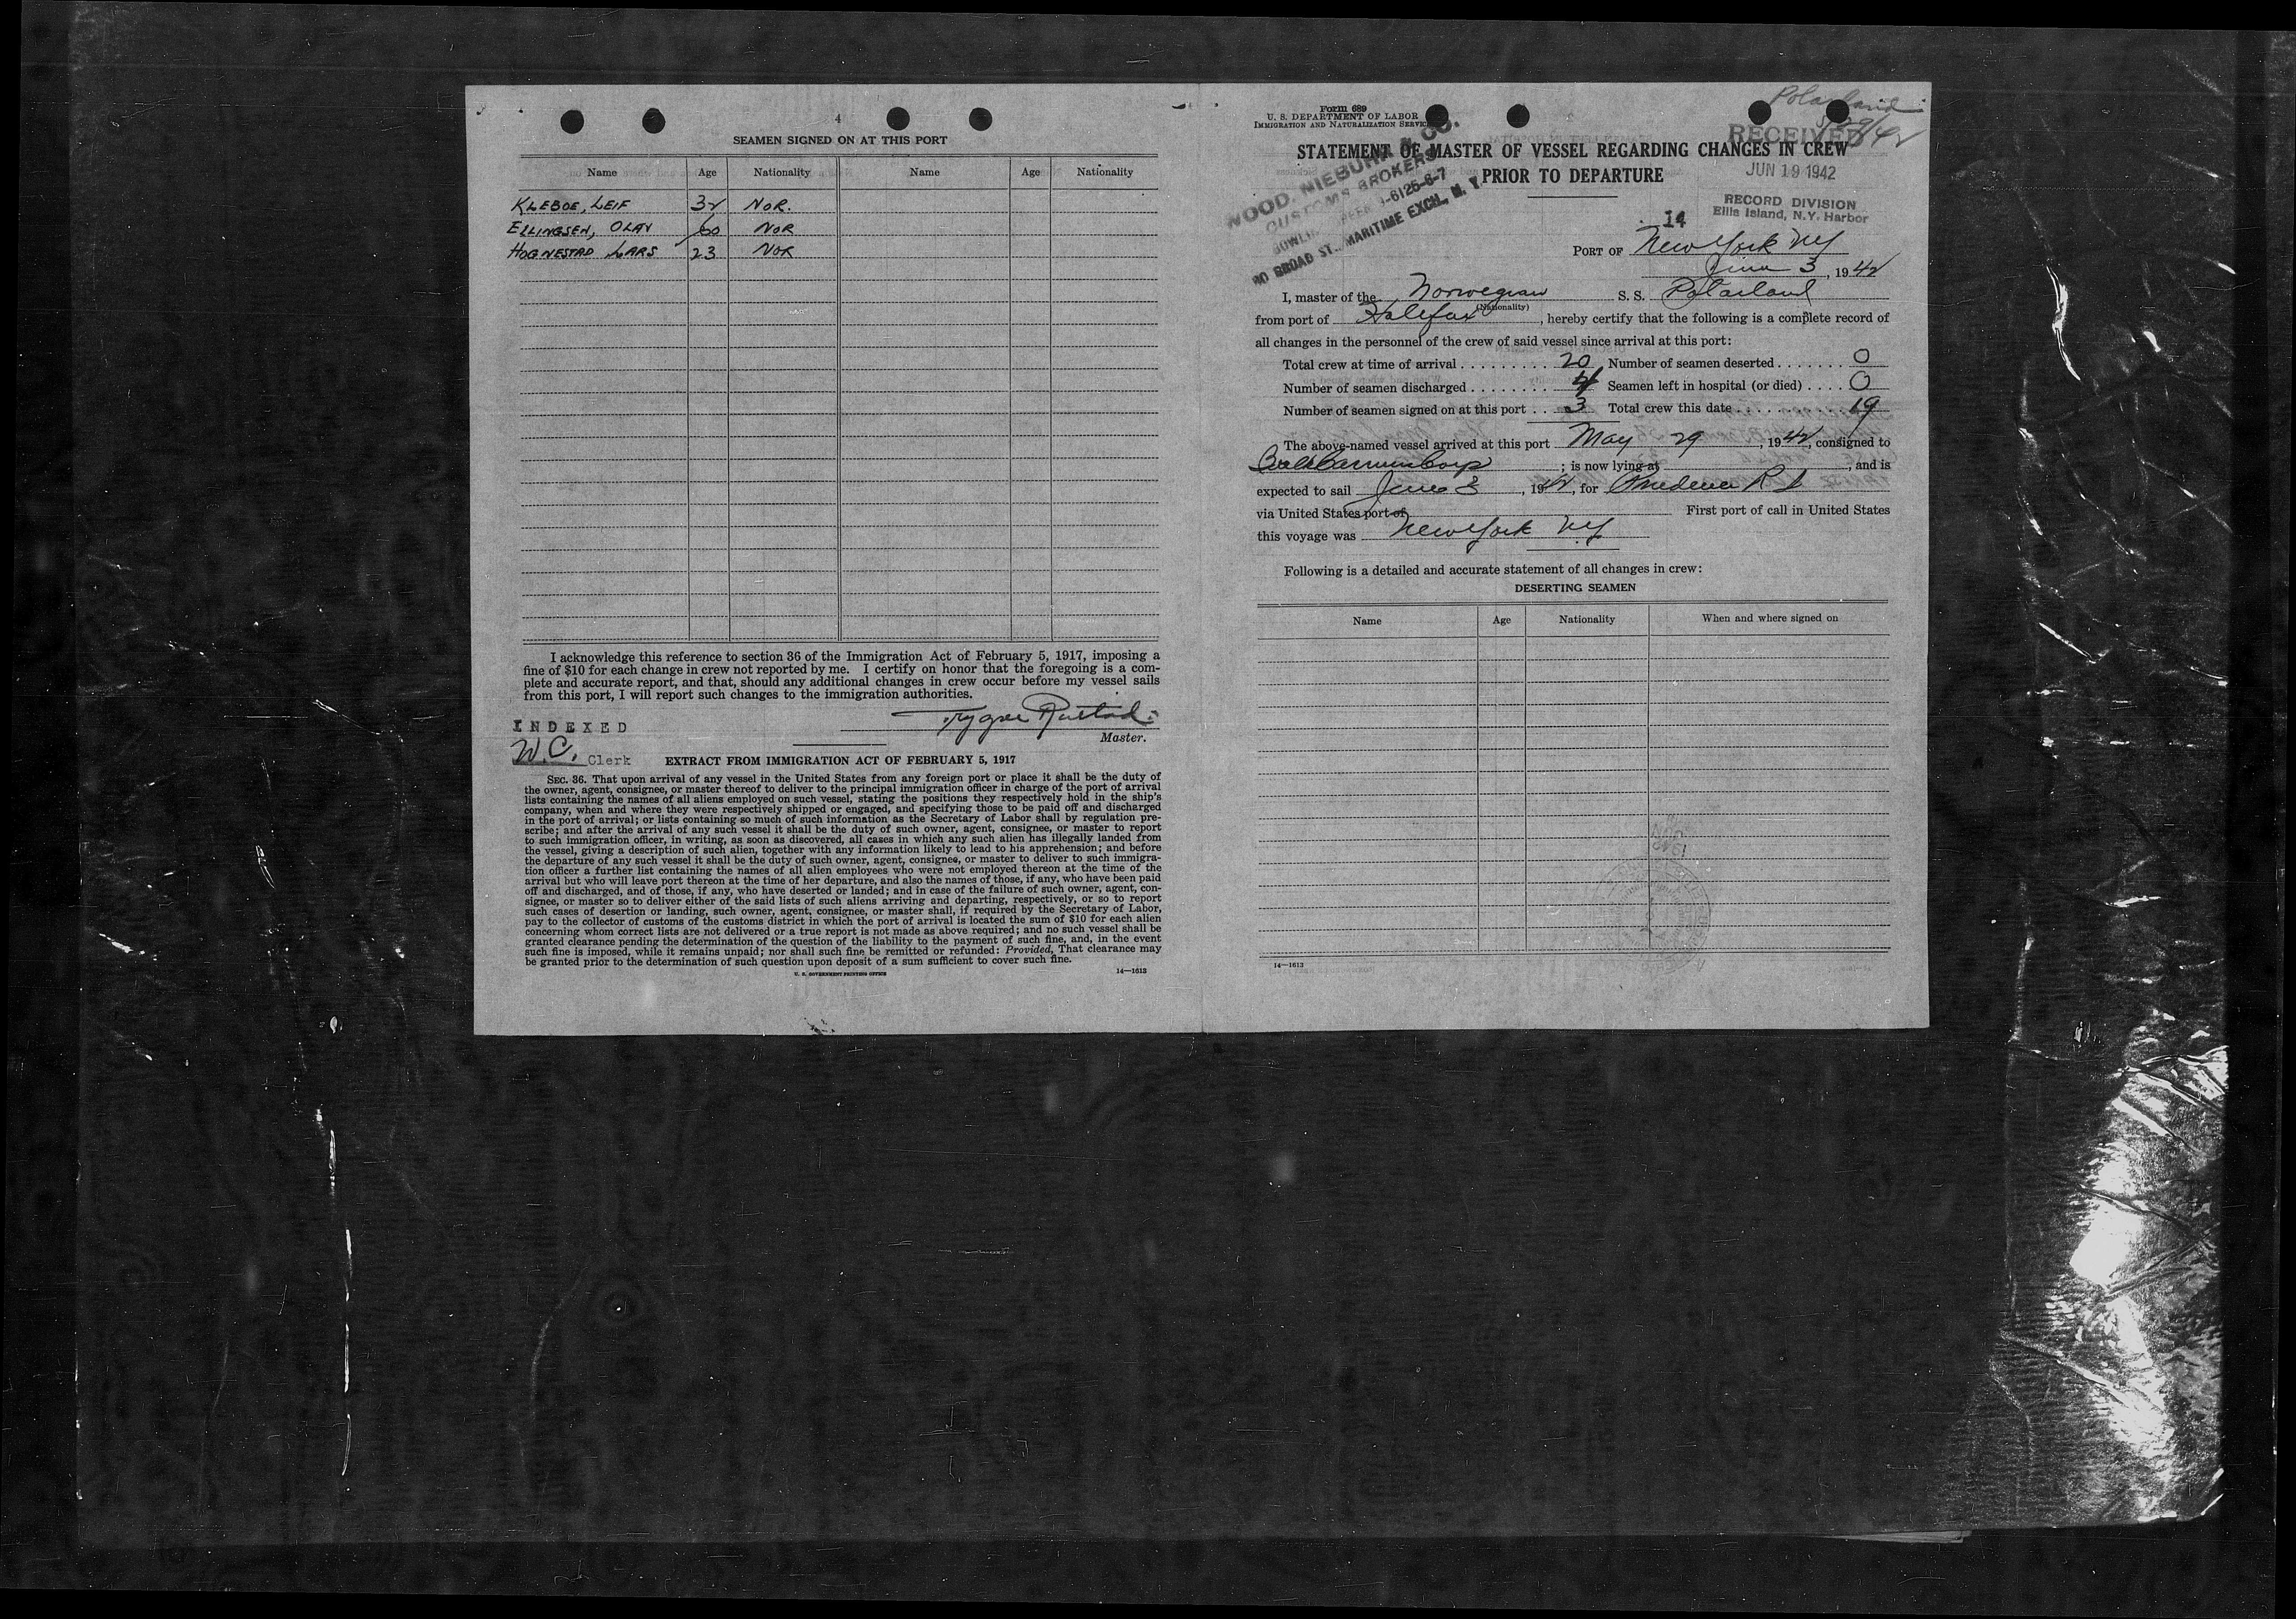 4
SEAMEN SIGNED ON AT THIS PORT
Name Age Nationality Name Age Nationality
KLEBOE, LEIF 32 NOR.
ELLINGSEN, OLAV 60 NOR
HOGNESTAD LARS 23 NOR
I acknowledge this reference to section 36 of the Immigration Act of February 5, 1917, imposing a
fine of $10 for each change in crew not reported by me. I certify on honor that the foregoing is a com-
plete and accurate report, and that, should any additional changes in crew occur before my vessel sails
from this port, I will report such changes to the immigration authorities.
INDEXED
Master.
W.C. Clerk
EXTRACT FROM IMMIGRATION ACT OF FEBRUARY 5, 1917
SEC. 36. That upon arrival of any vessel in the United States from any foreign port or place it shall be the duty of
the owner, agent, consignee, or master thereof to deliver to the principal immigration officer in charge of the port of arrival
lists containing the names of all aliens employed on such vessel, stating the positions they respectively hold in the ship's
company, when and where they were respectively shipped or engaged, and specifying those to be paid off and discharged
in the port of arrival; or lists containing so much of such information as the Secretary of Labor shall by regulation pre-
scribe; and after the arrival of any such vessel it shall be the duty of such owner, agent, consignee, or master to report
to such immigration officer, in writing, as soon as discovered, all cases in which any such alien has illegally landed from
the vessel, giving a description of such alien, together with any information likely to lead to his apprehension; and before
the departure of any such vessel it shall be the duty of such owner, agent, consignee, or master to deliver to such immigra-
tion officer a further list containing the names of all alien employees who were not employed thereon at the time of the
arrival but who will leave port thereon at the time of her departure, and also the names of those, if any, who have been paid
off and discharged, and of those, if any, who have deserted or landed; and in case of the failure of such owner, agent, con-
signee, or master so to deliver either of the said lists of such aliens arriving and departing, respectively, or so to report
such cases of desertion or landing, such owner, agent, consignee, or master shall, if required by the Secretary of Labor,
pay to the collector of customs of the customs district in which the port of arrival is located the sum of $10 for each alien
concerning whom correct lists are not delivered or a true report is not made as above required; and no such vessel shall be
granted clearance pending the determination of the question of the liability to the payment of such fine, and, in the event
such fine is imposed, while it remains unpaid; nor shall such fine be remitted or refunded: Provided, That clearance may
be granted prior to the determination of such question upon deposit of a sum sufficient to cover such fine.
U. S. GOVERNMENT PRINTING OFFICE 14—1613
Form 689
U. S. DEPARTMENT OF LABOR
IMMIGRATION AND NATURALIZATION SERVICE
Polarland
5/29/42
RECEIVED
STATEMENT OF MASTER OF VESSEL REGARDING CHANGES IN CREW
PRIOR TO DEPARTURE
JUN 19 1942
RECORD DIVISION
Ellis Island, N.Y. Harbor
WOOD, NIEBUHR & CO.
CUSTOMS BROKERS
9-6125-6-7
80 BROAD ST., MARITIME EXCH., N. Y.
14
PORT OF New York NY
June 3, 1942
I, master of the Norwegian S. S. Polarland
(Nationality)
from port of Halifax, hereby certify that the following is a complete record of
all changes in the personnel of the crew of said vessel since arrival at this port:
Total crew at time of arrival . . . . . . . . . 20 Number of seamen deserted . . . . . . . 0
Number of seamen discharged . . . . . . . . 4 Seamen left in hospital (or died) . . . . 0
Number of seamen signed on at this port . . 3 Total crew this date . . . . . . . . . . 19
The above-named vessel arrived at this port May 29, 1942, consigned to
; is now lying at , and is
expected to sail June 3, 1942, for Providence R I
via United States port of First port of call in United States
this voyage was New York NY
Following is a detailed and accurate statement of all changes in crew:
DESERTING SEAMEN
Name Age Nationality When and where signed on
14—1613